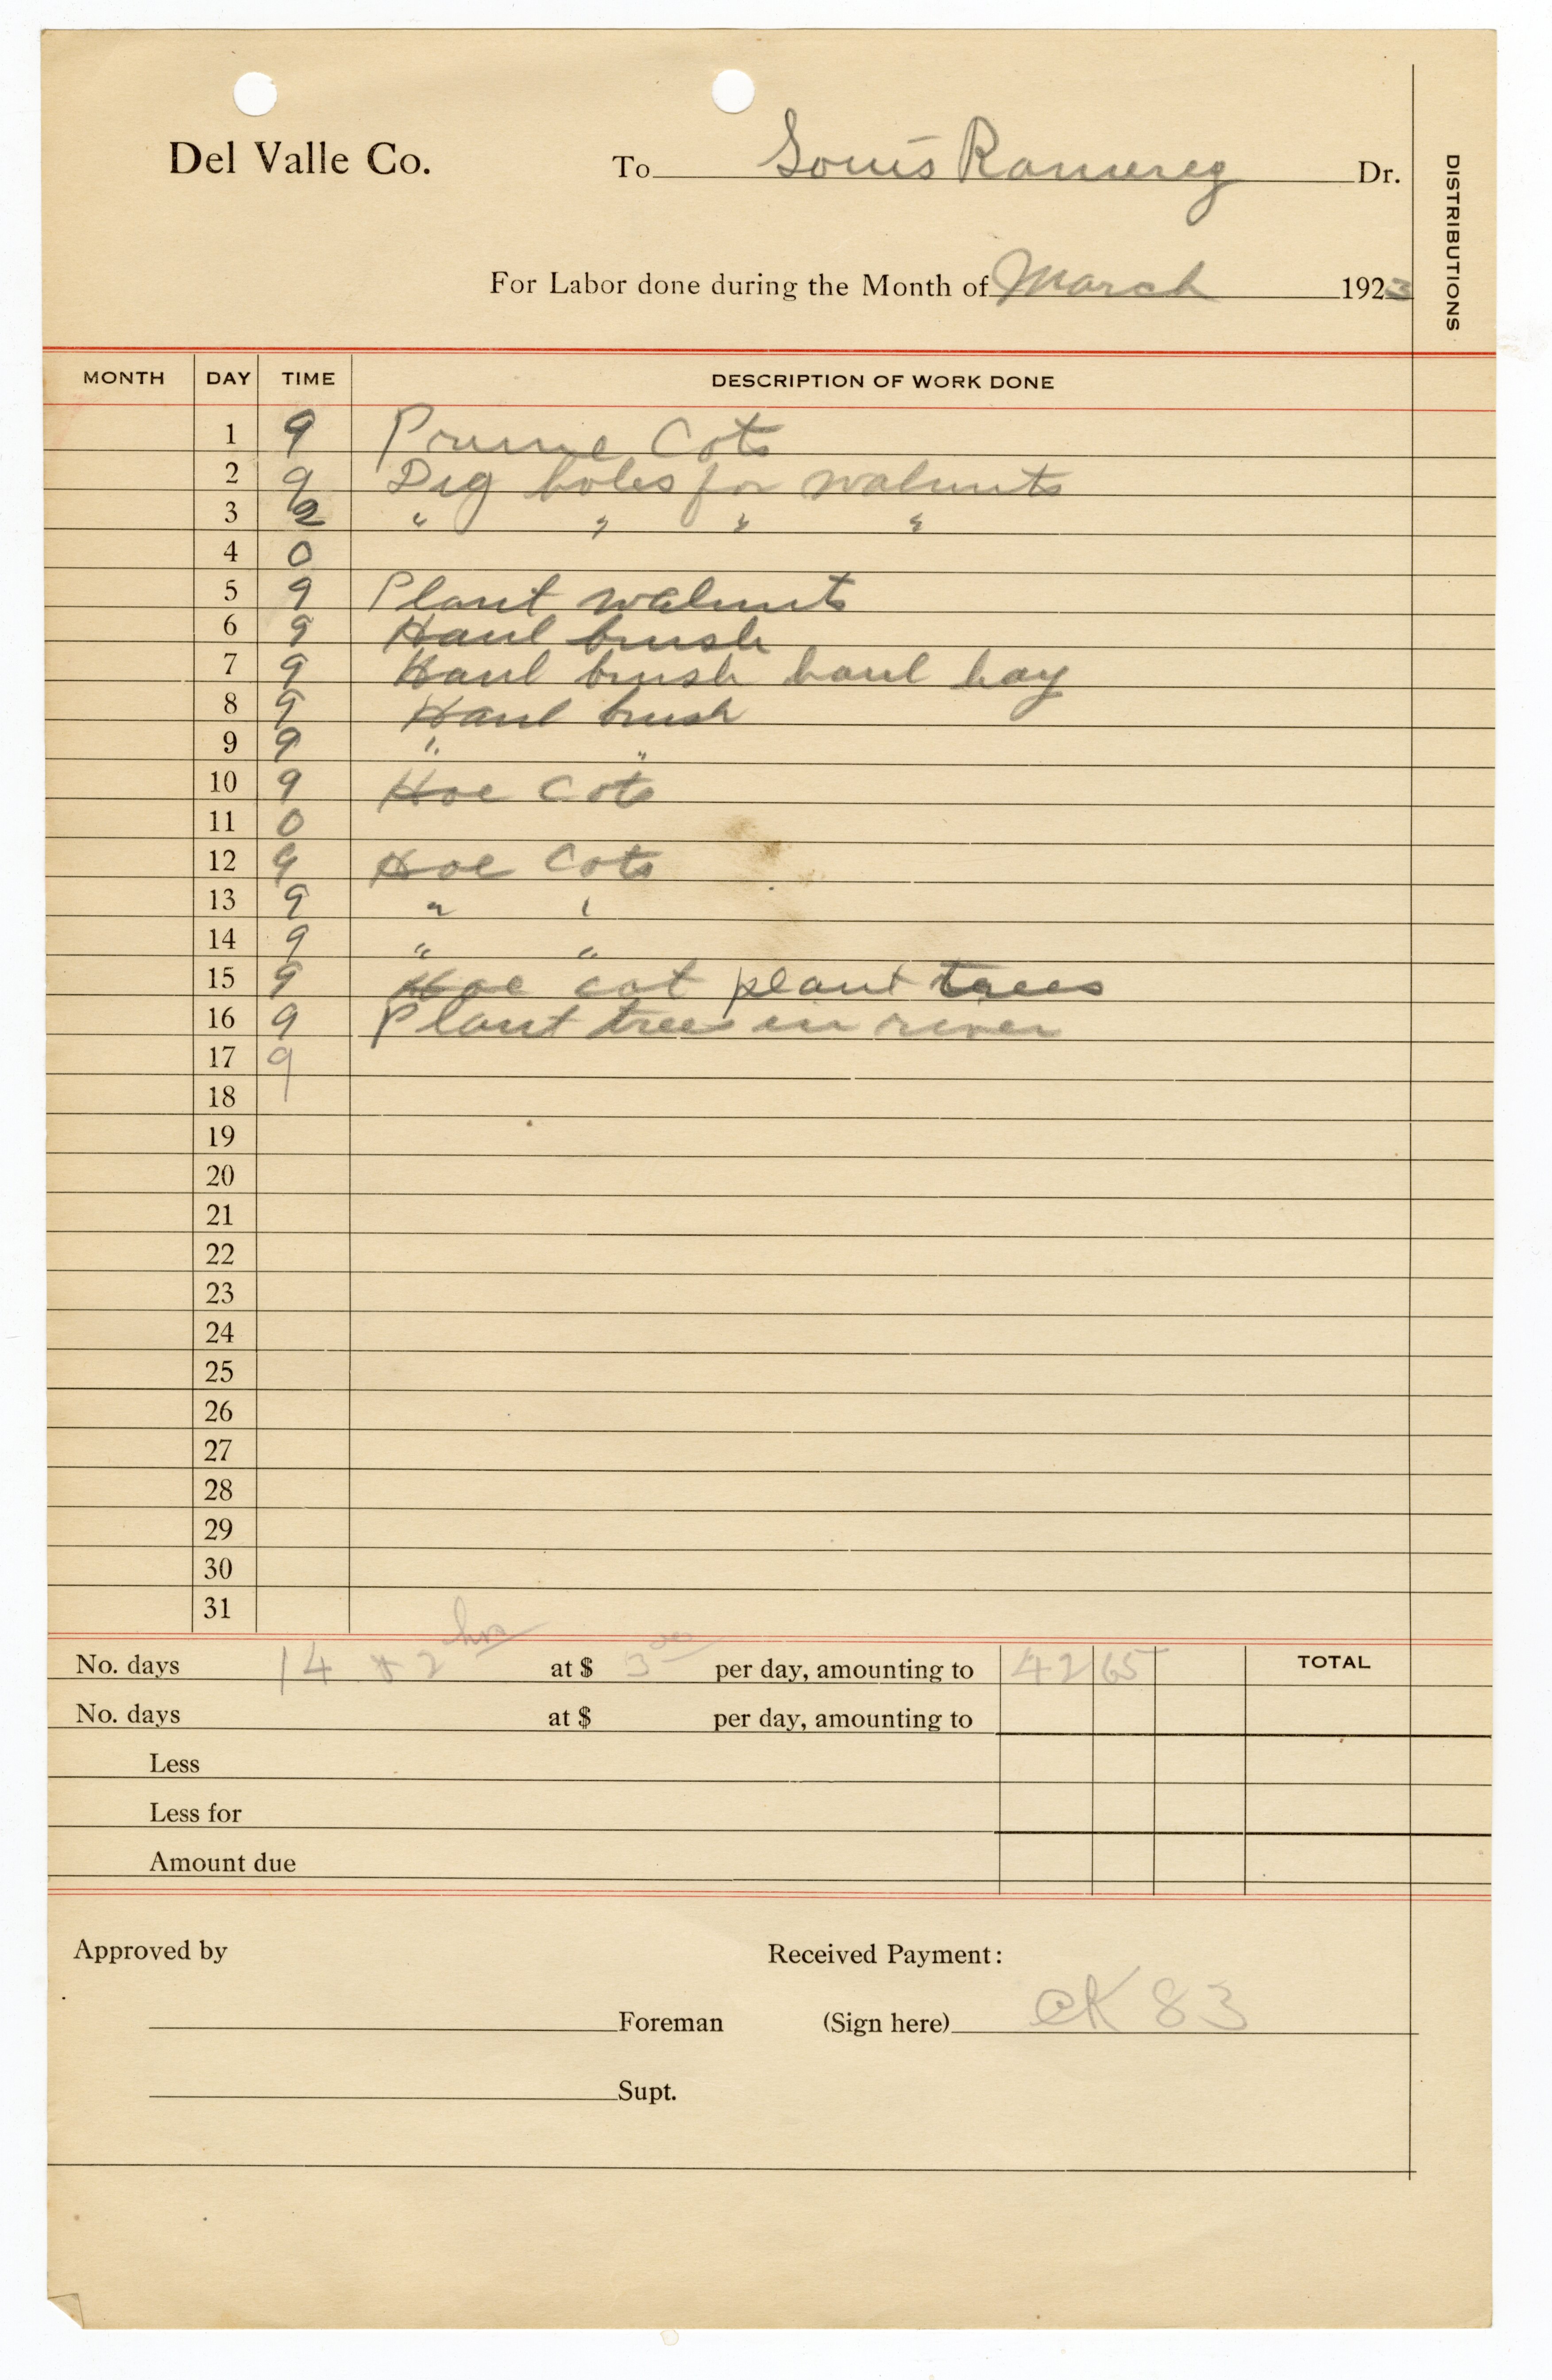 Del Valle Co. To Louis Ramerez Dr.
DISTRIBUTIONS
For Labor done during the Month of March 1923
MONTH DAY TIME DESCRIPTION OF WORK DONE
1 9 Prune Cots
2 9 Dig holes for walnuts
3 2 " " " "
4 0
5 9 Plant walnuts
6 9 Haul brush
7 9 Haul brush haul hay
8 9 Haul brush
9 9 " "
10 9 Hoe Cots
11 0
12 9 Hoe Cots
13 9 " "
14 9 " "
15 9 Hoe cot plant trees
16 9 Plant trees in river
17 9
18
19
20
21
22
23
24
25
26
27
28
29
30
31
No. days 14 + 2 hrs at $ 3 00 per day, amounting to 42 65 TOTAL
No. days at $ per day, amounting to
Less
Less for
Amount due
Approved by Received Payment:
Foreman (Sign here) CK 83
Supt.